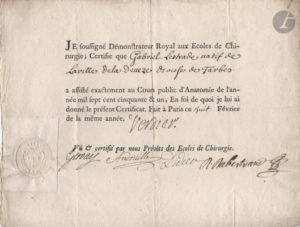 JE soussigné Démonstrateur Royal aux Ecoles de Chirurgie; Certifie que Gabriel Lestrade natif de
Laville de la douze diocese de Tarbes
a assisté exactement au Cours public d'Anatomie de l'année mil sept cent cinquante & un; En foi de quoi je lui ai
donné le présent Certificat. Fait à Paris ce huit Février
de la même année.
Verdier.
Vû & certifié par nous Prévôts des Ecoles de Chirurgie.